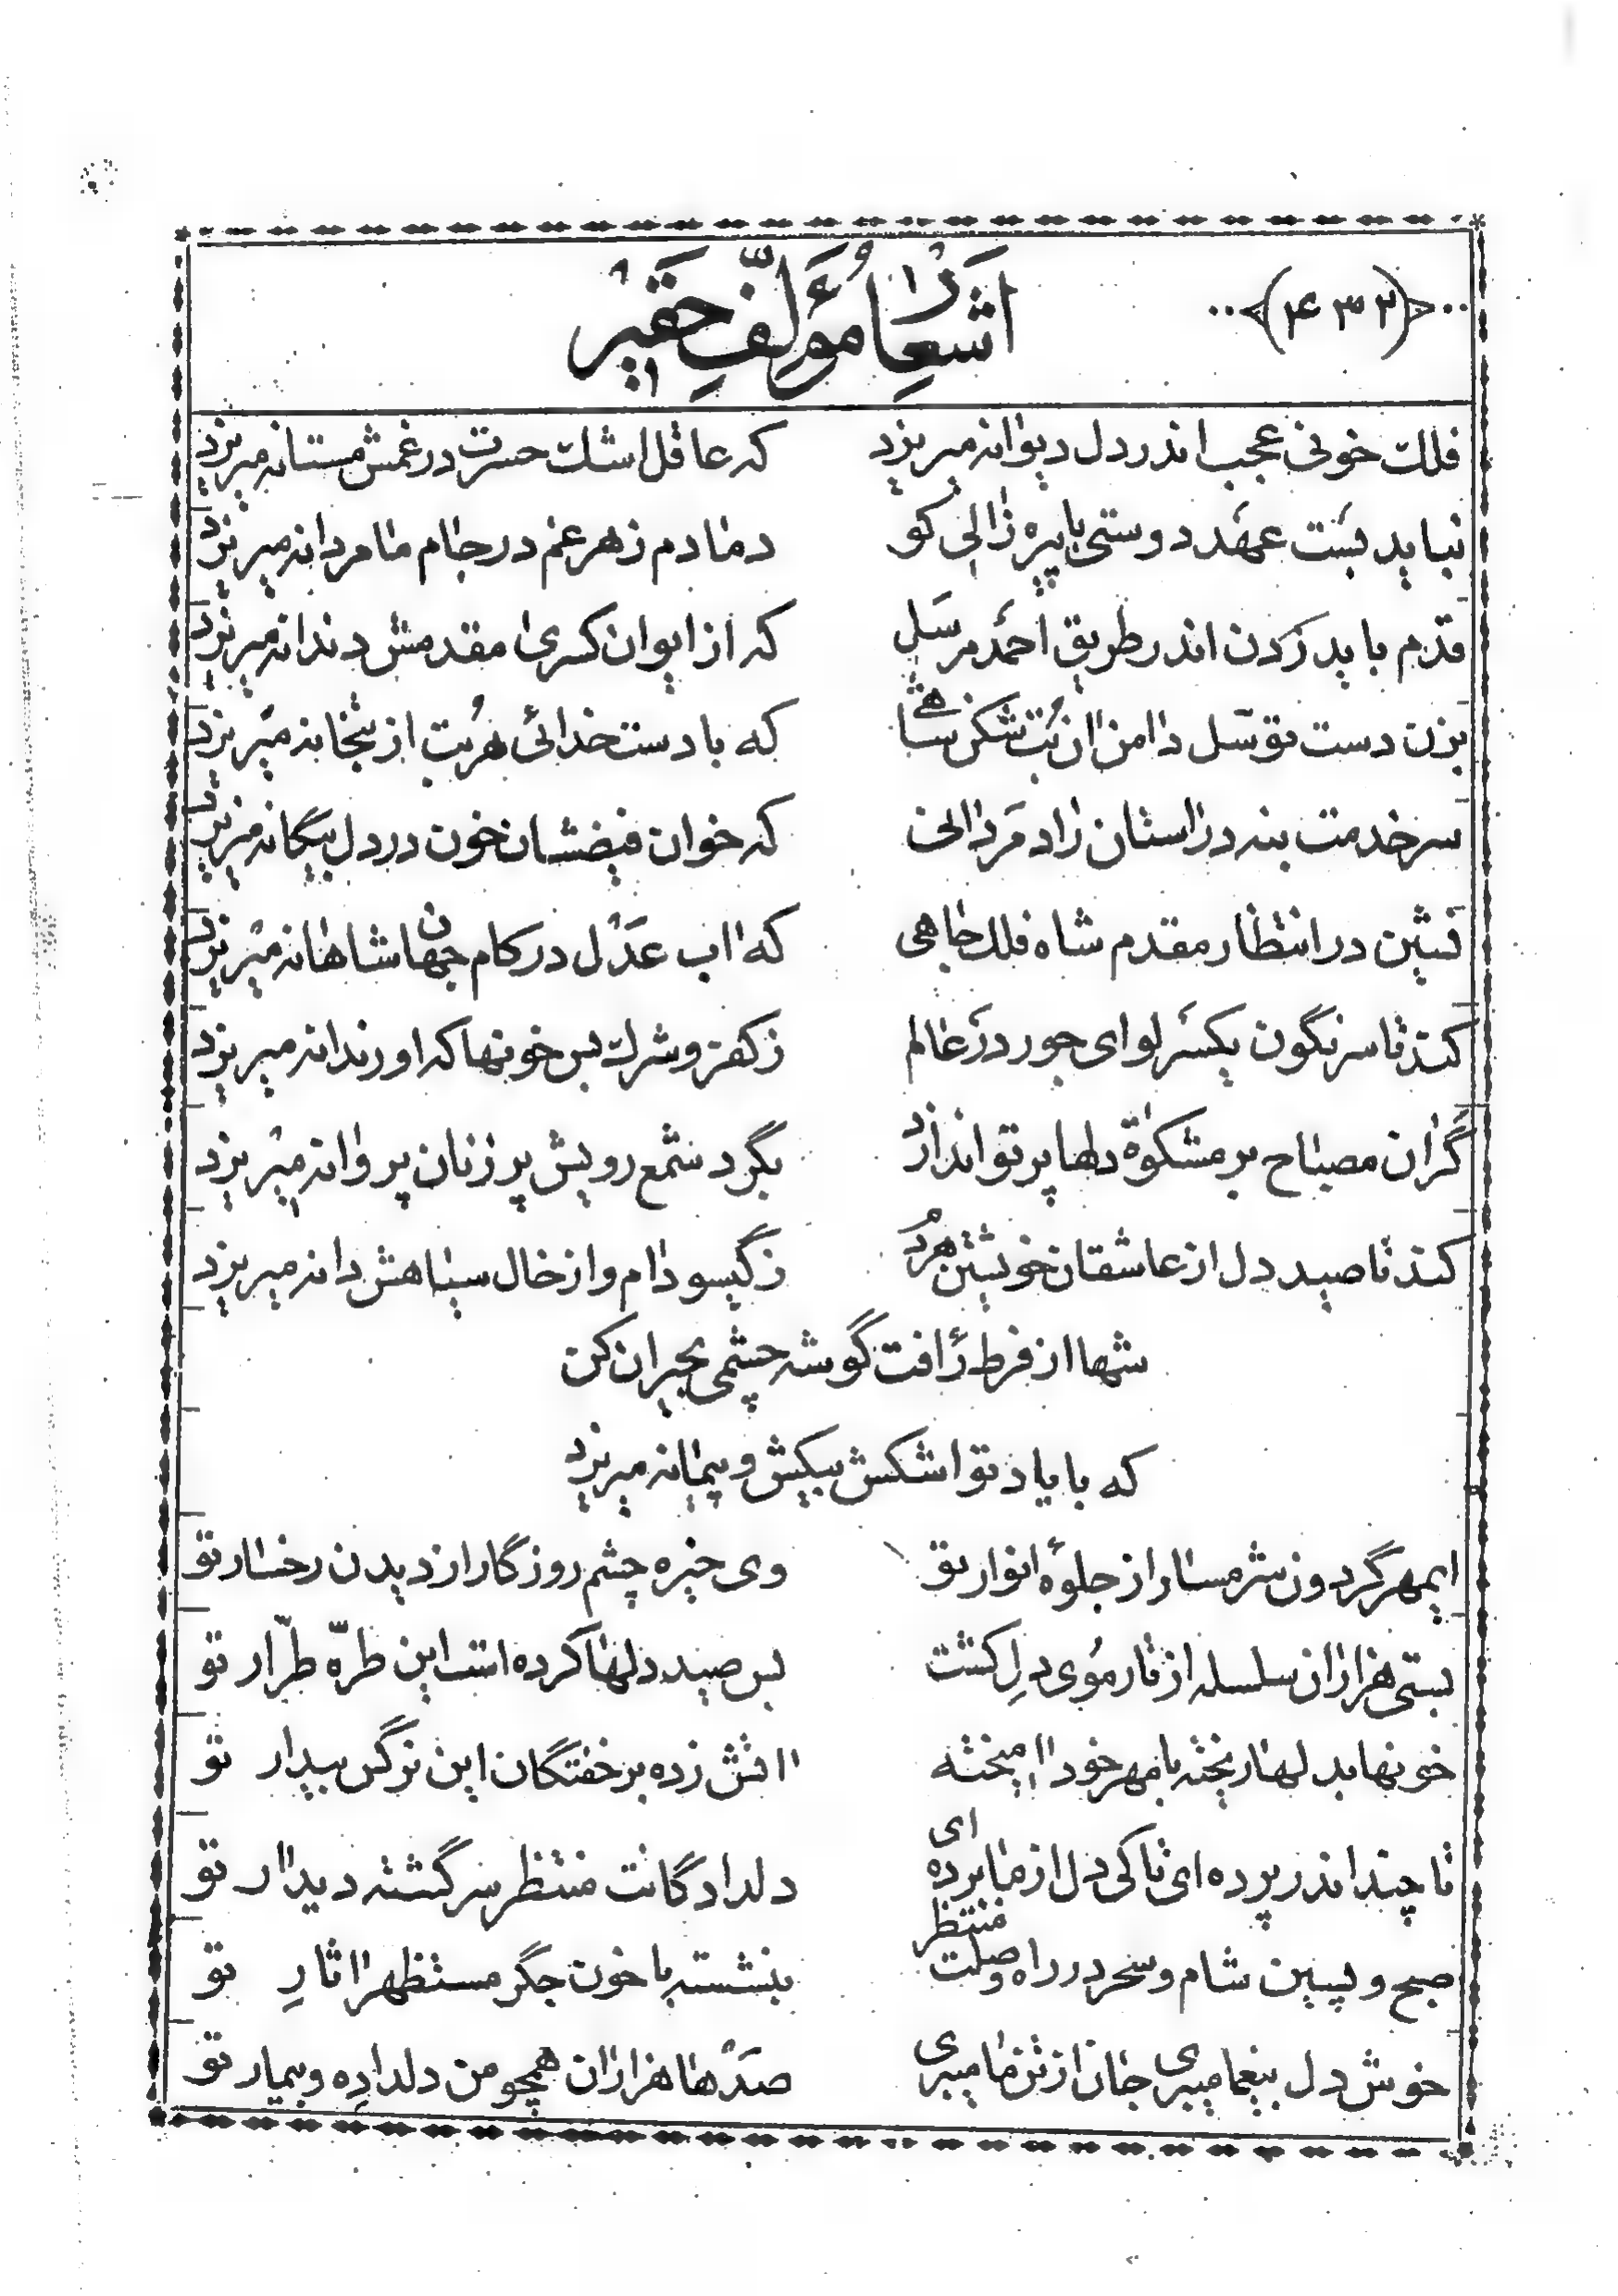 ﴿۴۳۲﴾ اشعار مؤلّف حقیر
فلک خونی عجب اندر دل دیوانه میریزد که عاقل اشک حسرت در غمش مستانه میریزد
نباید بست عهد دوستی با پیره زالی کو دمادم زهر غم در جام ما مردانه میریزد
قدم باید زدن اندر طریق احمد مرسل که از ایوان کسری مقدمش دندانه میریزد
بزن دست توسّل دامن آن بت شکن شاهی که با دست خدائی هر بت از بتخانه میریزد
سر خدمت بنه در آستان راد مردانی که خوان فیضشان خون در دل بیگانه میریزد
نشین در انتظار مقدم شاه فلک جاهی که آب عدل در کام جهان شاهانه میریزد
کند تا سرنگون یکسر لوای جور در عالم ز کفر و شرک بس خونها که او رندانه میریزد
گر آن مصباح بر مشکوة دلها پرتو اندازد بگرد شمع رویش پر زنان پروانه میریزد
کند تا صید دل از عاشقان خویشتن هر دم ز گیسو دام و از خال سیاهش دانه میریزد
شها از فرط رأفت گوشه چشمی بحیران کن
که با یاد تو اشکش بیکش و پیمانه میریزد
ایمهر گردون شرمسار از جلوهٔ انوار تو وی خیره چشم روزگار از دیدن رخسار تو
بستی هزاران سلسله از تار موی دل کشت بس صید دلها کرده است این طرّه طرّار تو
خونها بدلها ریخته با مهر خود آمیخته آتش زده بر خفتگان این نرگس بیدار تو
تا چند اندر پرده ای تا کی دل از ما برده ای دلدادگانت منتظر سرگشته دیدار تو
صبح و پسین شام و سحر در راه وصلت منتظر بنشسته با خون جگر مستظهر آثارِ تو
خوش دل بیغما میبری جان از تن ما میبری صدها هزاران همچو من دلداده و بیمار تو